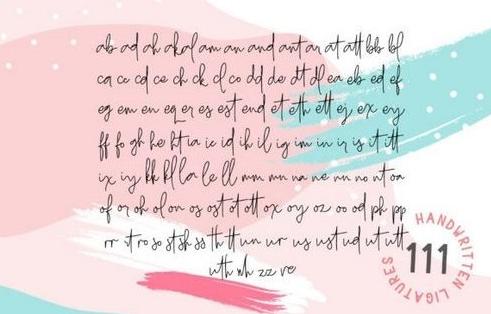 ab ad ah ak al am an and ant ar at att bb bl
ca cc cd ce ch ck cl co dd de dt dl ea eb ed ef
eg em en eq er es est end et eth ett ej ex ey
ff fo gh he ht ia ic id ih il ig im in ir is it itt
ix iy kk kl la le ll mm mn na ne nn no nt oa
of or oh ol on os ost ot ott ox oy oz oo od ph pp
rr rt ro so st sh ss th tt un ur us ust ud ut utt
uth wh zz ve
HANDWRITTEN LIGATURES
111